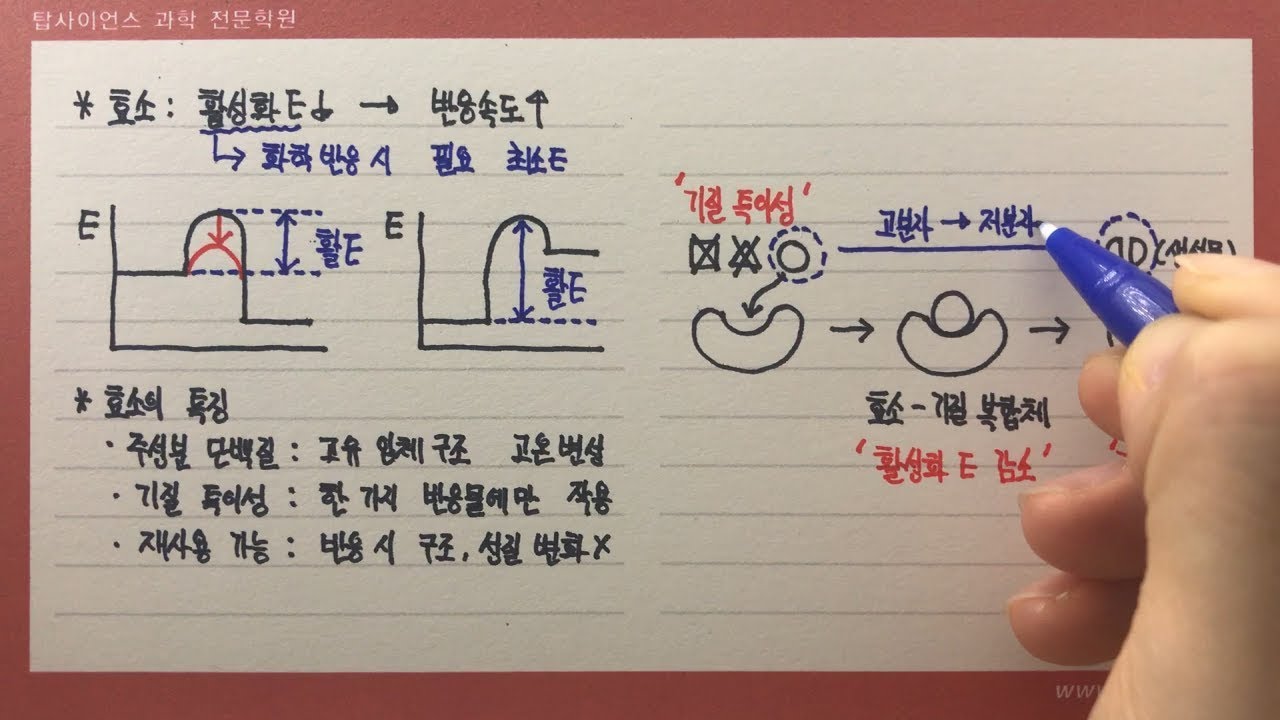 탑사이언스 과학 전문학원
* 효소 : 활성화 E↓ → 반응속도↑
↳ 화학 반응 시 필요 최소E
E
활E
E
활E
* 효소의 특징
· 주성분 단백질 : 고유 입체 구조 고온 변성
· 기질 특이성 : 한 가지 반응물에만 작용
· 재사용 가능 : 반응 시 구조, 성질 변화 X
'기질 특이성'
고분자 → 저분자
(생성물)
효소 - 기질 복합체
'활성화 E 감소'
www